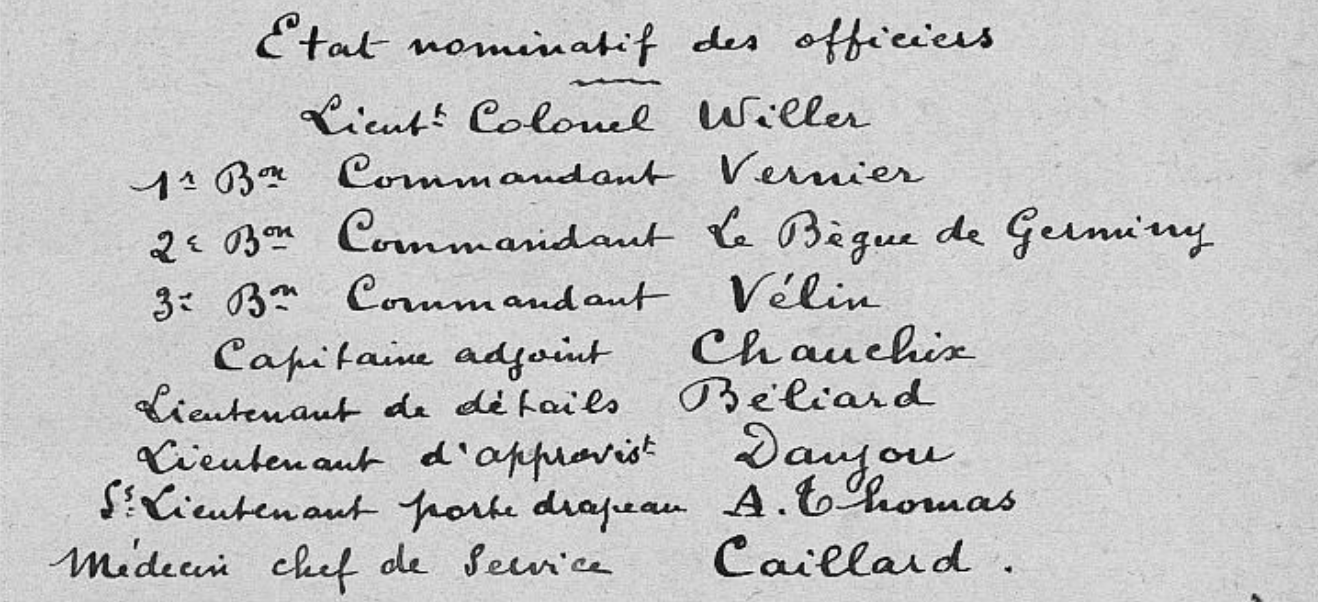 Etat nominatif des officiers
Lieut^t Colonel Willer
1^r B^on Commandant Vernier
2^e B^on Commandant Le Bègue de Germiny
3^e B^on Commandant Vélin
Capitaine adjoint Chauchix
Lieutenant de détails Béliard
Lieutenant d'approvis^t Danjou
S^s Lieutenant porte drapeau A. Thomas
Médecin chef de Service Caillard.